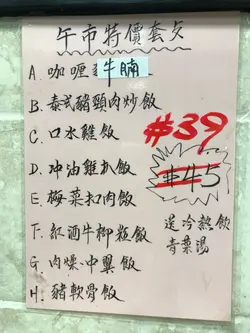 午市特價套歺
A. 咖喱牛腩
B. 泰式豬頸肉炒飯
C. 口水雞飯
D. 沖油雞扒飯
E. 梅菜扣肉飯
F. 紅酒牛柳粒飯
G 肉燥.中翼飯
H. 豬軟骨飯
$39
$45
送冷熱飲
青菜湯